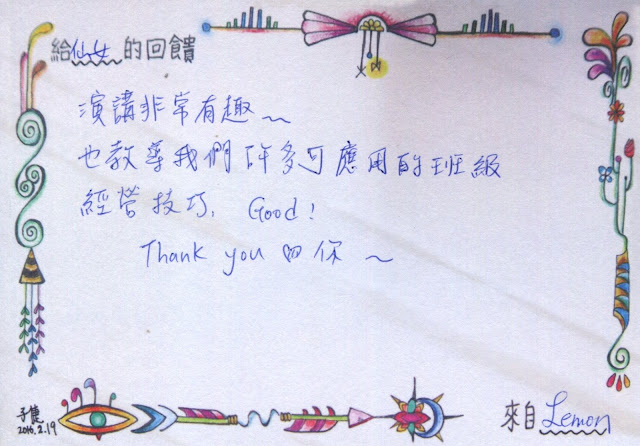 給仙女的回饋
演講非常有趣～
也教導我們許多可應用的班級
經營技巧, Good!
Thank you ♡ 你～
2016.2.19
來自Lemon